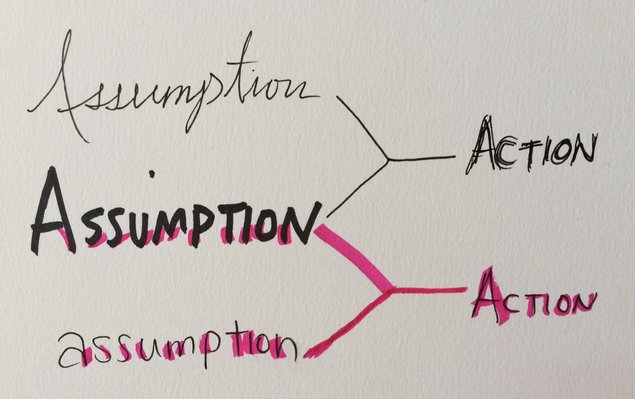 Assumption
Action
ASSUMPTION
Action
assumption